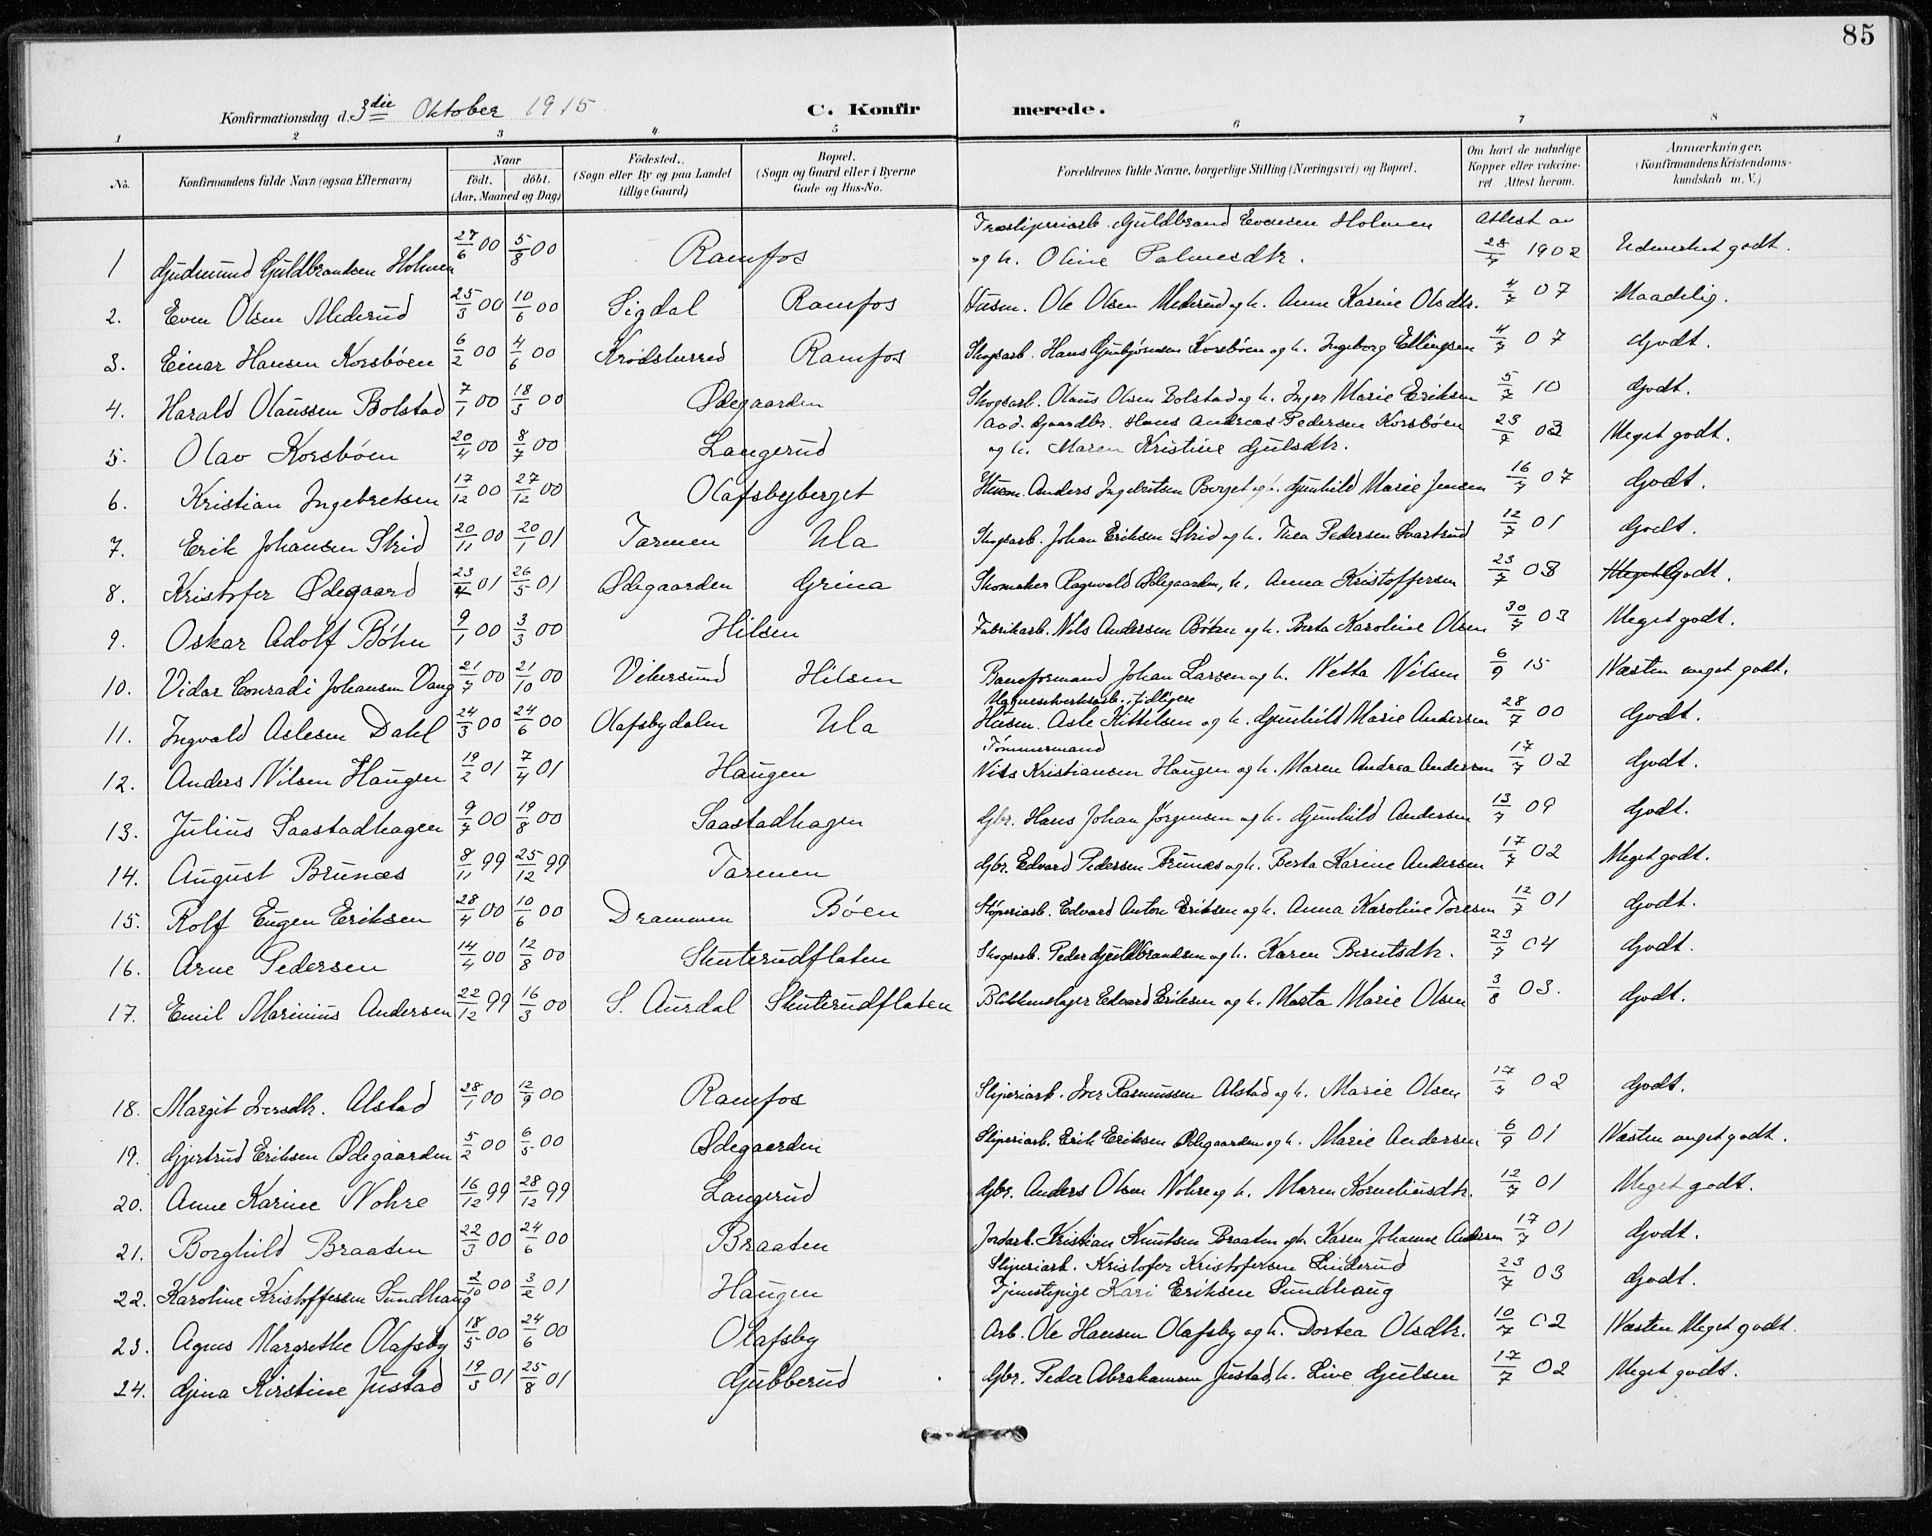 85
Konfirmationsdag d. 3die Oktober 1915
C. Konfirmerede.
1 2 3 4 5 6 7 8
No. Konfirmandens fulde Navn (ogsaa Efternavn) Naar födt. döbt. (Aar, Maaned og Dag) Födested. (Sogn eller By og paa Landet tillige Gaard) Bopæl. (Sogn og Gaard eller i Byerne Gade og Hus-No. Forældrenes fulde Navne, borgerlige Stilling (Næringsvei) og Bopæl. Om havt de naturlige Kopper eller vakcineret. Attest herom. Anmærkninger. (Konfirmandens Kristendomskundskab m. V.)
1 Gudmund Guldbrandsen Holmen 27/6 00 5/8 00 Ramfos Træsliperiarb. Guldbrand Evensen Holmen og h. Oline Palmesdtr. Attest av 28/7 1902 Udmerket godt.
2. Even Olsen Mederud 25/3 00 10/6 00 Sigdal Ramfos Husm. Ole Olsen Mederud og h. Anne Karine Olsdtr. 4/7 07 Maadelig.
3. Einar Hansen Korsböen 6/2 00 4/6 00 Krödsherred Ramfos Skogsarb. Hans Gunbjörnsen Korsböen og h. Ingeborg Ellingsen 4/7 07 Godt.
4. Harald Olaussen Bolstad 7/1 00 18/3 00 Ødegaarden Skogsarb. Olaus Olsen Bolstad og h. Inger Marie Eriksen 5/7 10 Godt.
5. Olav Korsböen 20/4 00 8/7 00 Langerud Aad. Gaardbr. Hans Andreas Pedersen Korsböen og h. Maren Kristine Gulsdtr. 23/7 03 Meget godt.
6. Kristian Ingebretsen 17/12 00 27/12 00 Olafsbyberget Husm. Anders Ingebritsen Berget og h. Gunhild Marie Jensen 16/7 07 Godt.
7. Erik Johansen Strid 20/11 00 20/1 01 Tarmen Ula Skogsarb. Johan Eriksen Strid og h. Thea Pedersen Svartrud 12/7 01 Godt.
8. Kristofer Ødegaard 23/4 01 26/5 01 Ødegaarden Grina Skomaker Ragnvald Ødegaarden, h. Anna Kristoffersen 23/7 03 Meget Godt.
9. Oskar Adolf Böhn 9/1 00 3/3 00 Hilsen Fabrikarb. Nils Andersen Böhn og h. Berta Karoline Olsen 30/7 03 Meget godt.
10. Vidar Conradi Johansen Vang 21/7 00 21/10 00 Vikersund Hilsen Baneformand Johan Larsen og h. Netta Nilsen 6/9 15 Næsten meget godt.
11. Ingvald Aslesen Dahl 24/3 00 24/6 00 Olafsbydalen Ula tidligere Husm. Asle Kittelsen og h. Gunhild Marie Andersen 28/7 00 Godt.
12. Anders Nilsen Haugen 19/2 01 7/4 01 Haugen Tömmermand Nils Kristiansen Haugen og h. Maren Andrea Andersen 17/7 02 Godt.
13. Julius Saastadhagen 9/7 00 19/8 00 Saastadhagen Gbr. Hans Johan Jörgensen og h. Gunhild Andersen 13/7 09 Godt.
14. August Brunæs 8/11 99 25/12 99 Tarmen Gbr. Edvard Pedersen Brunæs og h. Berta Karine Andersen 17/7 02 Meget godt.
15. Rolf Eugen Eriksen 28/4 00 10/6 00 Drammen Böen Stöperiarb. Edvard Anton Eriksen og h. Anna Karoline Toresen 12/7 01 Godt.
16. Arne Pedersen 14/4 00 12/8 00 Skuterudflaten Skogsarb. Peder Guldbrandsen og h. Karen Berntsdtr. 23/7 04 Godt.
17. Emil Marinius Andersen 22/12 99 16/3 00 S. Aurdal Skuterudflaten Blikkenslager Edvard Eriksen og h. Marta Marie Olsen 3/8 03. Godt.
18. Margit Iversdtr. Alstad 28/1 00 12/9 00 Ramfos Sliperiarb. Iver Rasmussen Alstad og h. Marie Olsen 17/7 02 Godt.
19. Gjertrud Eriksen Ødegaarden 5/2 00 6/5 00 Ødegaarden Sliperiarb. Erik Eriksen Ødegaarden og h. Marie Andersen 6/9 01 Næsten meget godt.
20. Anne Karine Nohre 16/12 99 28/12 99 Langerud Gbr. Anders Olsen Nohre og h. Maren Korneliusdtr. 12/7 01 Meget godt.
21. Borghild Braaten 22/3 00 24/6 00 Braaten Jordarb. Kristian Knutsen Braaten og h. Karen Johanne Andersen 17/7 01 Godt.
22. Karoline Kristoffersen Sundhaug 2/10 00 3/2 01 Haugen Sliperiarb. Kristofer Kristofersen Linderud Tjenestepige Kari Eriksen Sundhaug 23/7 03 Godt.
23. Agnes Margrethe Olafsby 18/5 00 24/6 00 Olafsby Arb. Ole Hansen Olafsby og h. Dortea Olsdtr. 10/7 02 Næsten Meget godt.
24. Gina Kirstine Justad 19/3 01 25/8 01 Gubberud Gbr. Peder Abrahamsen Justad, h. Live Gulsen 17/7 02 Meget godt.